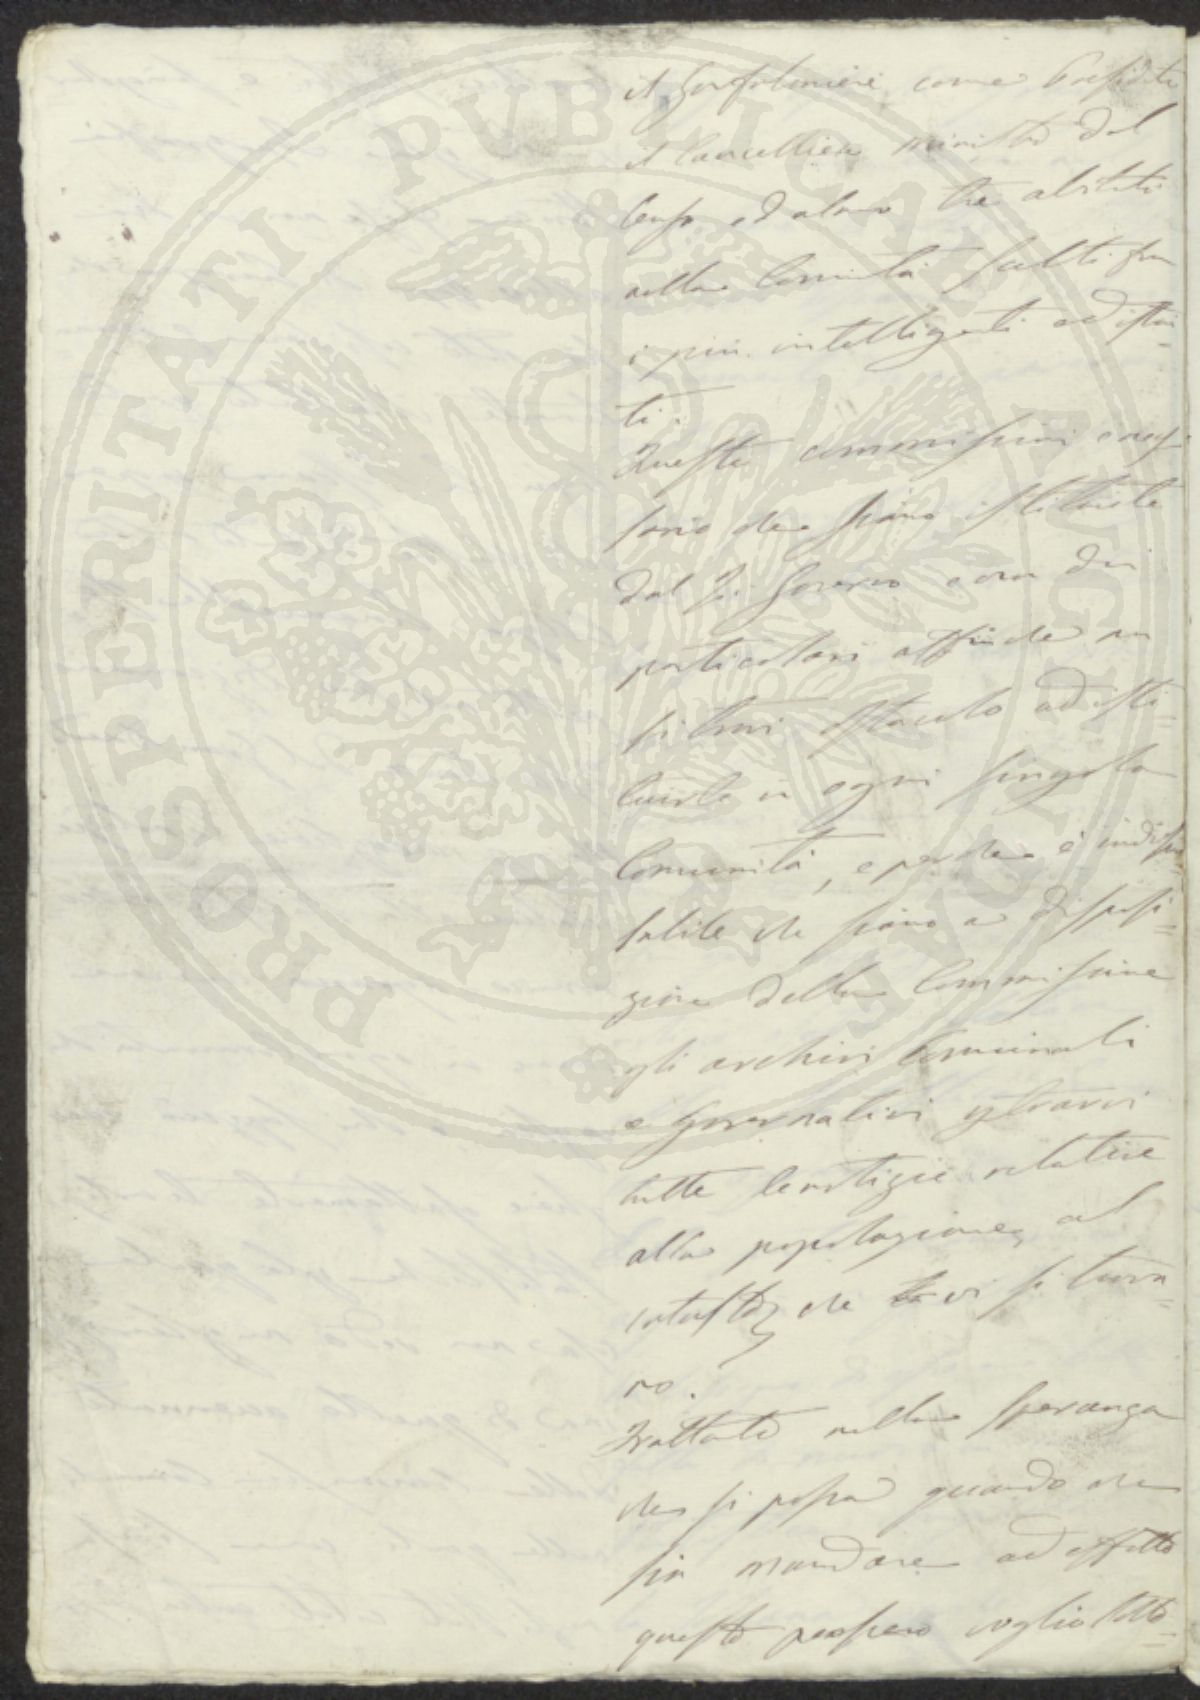 PROSPERITATI PUBLICAE AUGENDAE
il Gonfaloniere come Presidente
il Cancelliere ministro del
Censo ed almeno tre abitati
nella Comunità scelti fra
i più intelligenti ed istrui=
ti.
Queste commissioni
sario che siano istituite
dal I. Governo e non dei
particolari affinche non
si trovi ostacolo ad isti=
tuirle in ogni singola
Comunità, e perche è indispen
sabile che siano a disposi=
zione della Commissione
gli archivi Comunali
e Governativi
tutte le notizie relative
alla popolazione, al
catasto, che vi si trova=
no.
Frattanto nella speranza
che si possa quando che
sia mandare ad effetto
questo pensiero